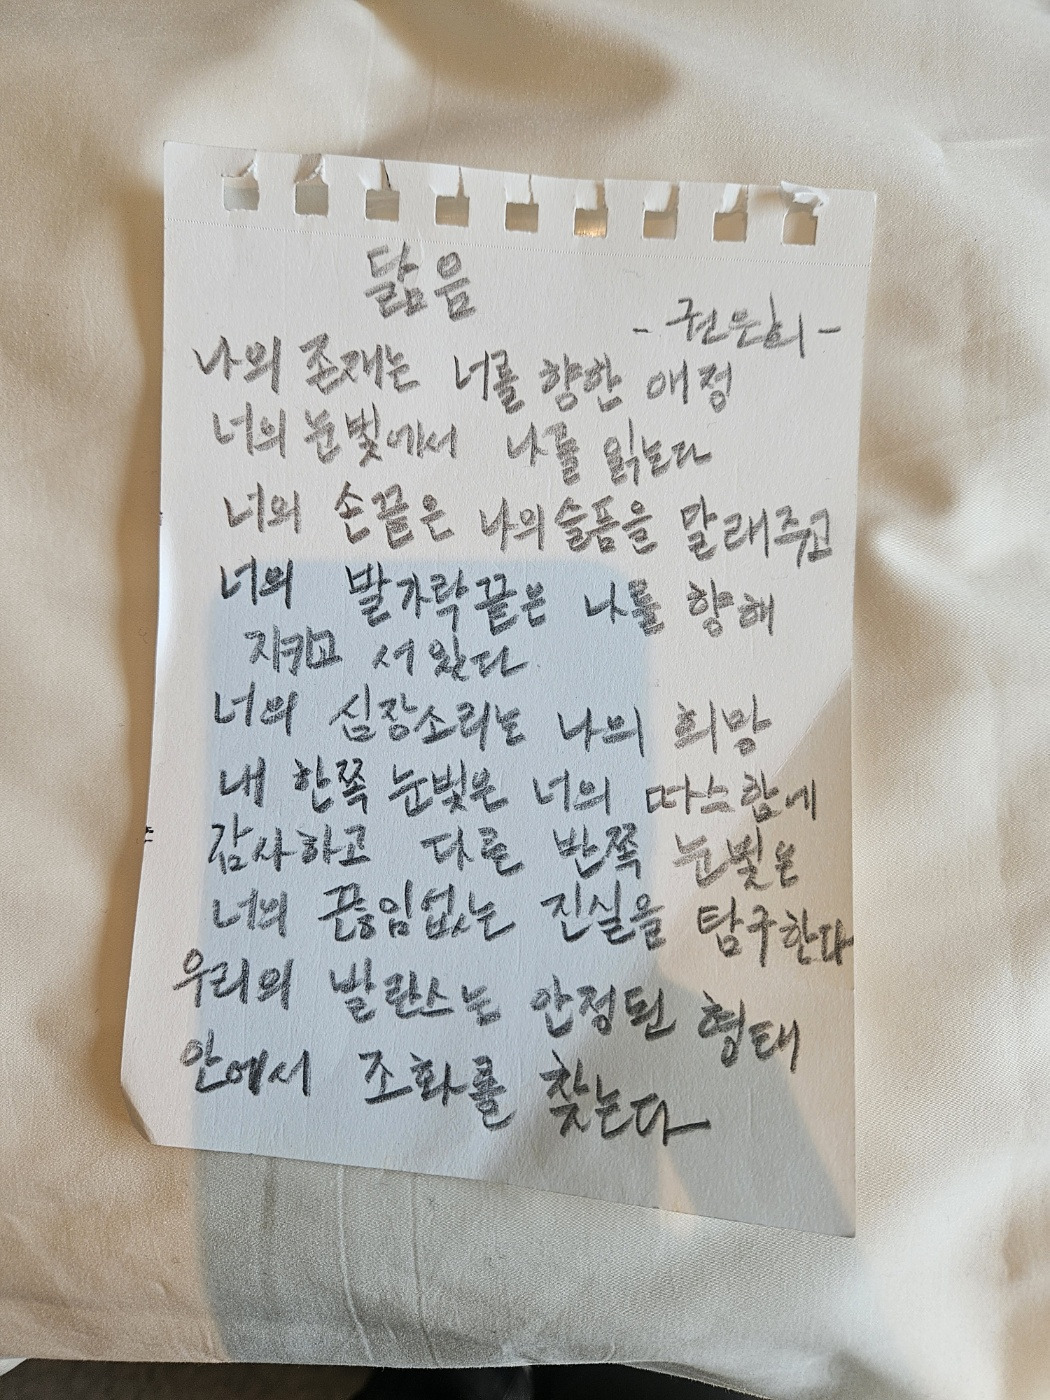 닮음
- 권은희 -
나의 존재는 너를 향한 애정
너의 눈빛에서 나를 읽는다
너의 손끝은 나의 슬픔을 말래주고
너의 발가락끝은 나를 향해
지키고 서 있다
너의 심장소리는 나의 희망
내 한쪽 눈빛은 너의 따스함에
감사하고 다른 반쪽 눈빛은
너의 끊임없는 진실을 탐구한다
우리의 발란스는 안정된 형태
안에서 조화를 찾는다